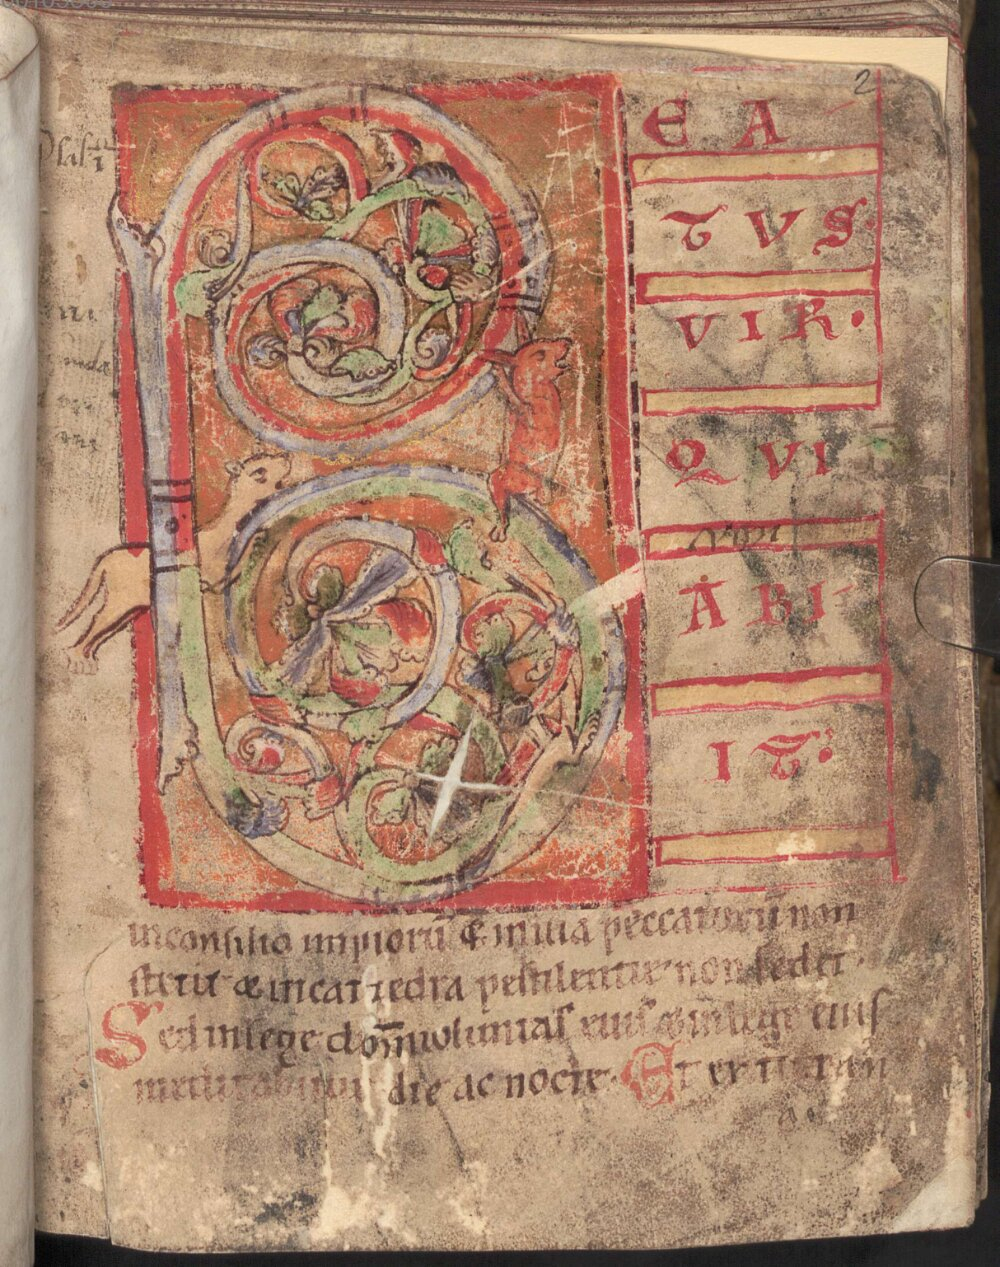 2
B EA
TVS
VIR·
QVI
ABI
IT·
inconsilio impiorū & inuia peccatorū non
stetit & incathedra pestilentiæ non sedet·
Sed inlege dom̄ uoluntas eius & inlege eius
meditabitur die ac nocte· Et erit tan̄